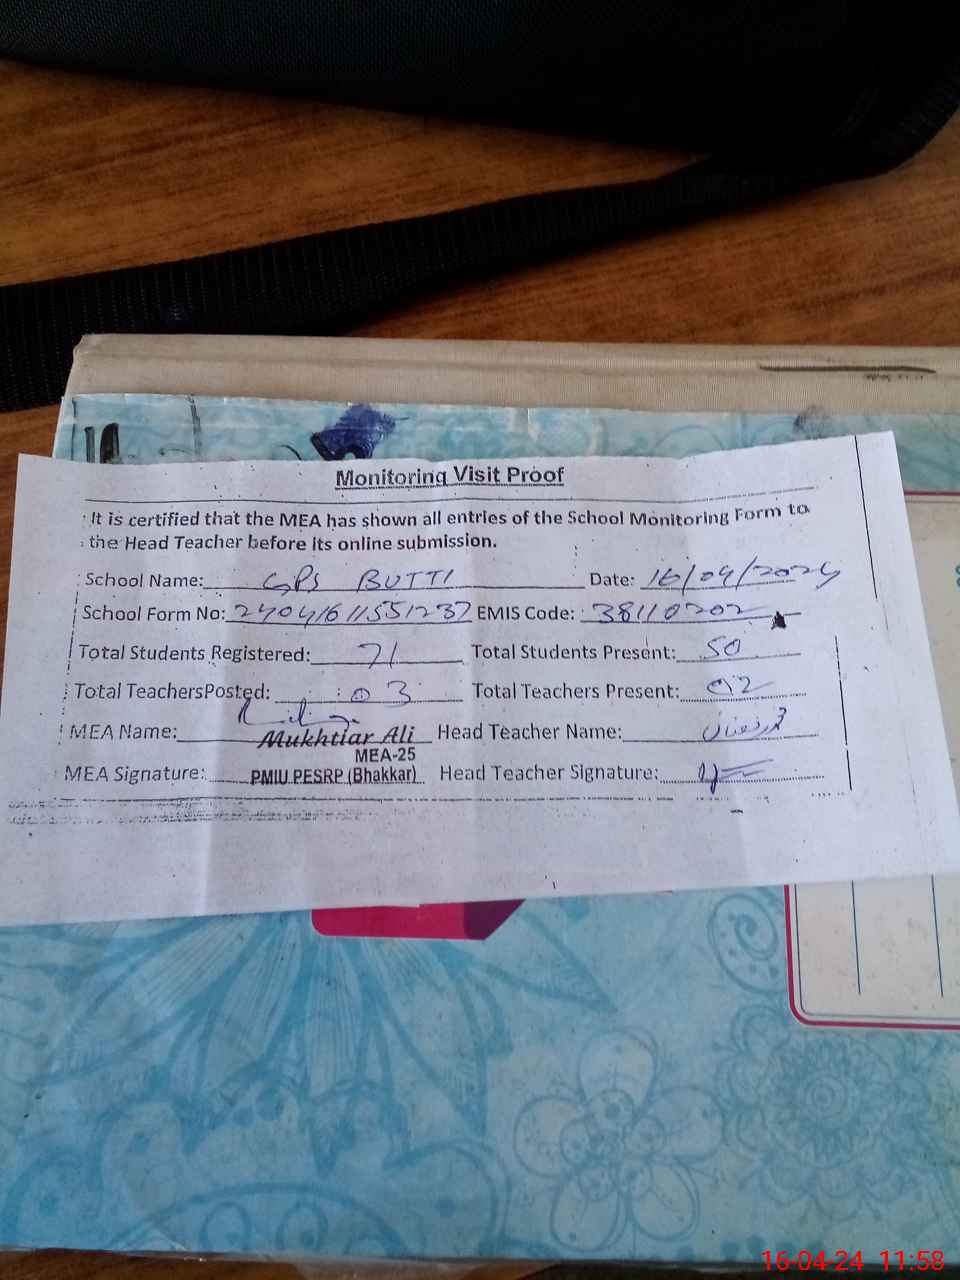 Monitoring Visit Proof
It is certified that the MEA has shown all entries of the School Monitoring Form to
the Head Teacher before its online submission.
School Name: GPS BUTTI Date: 16/04/2024
School Form No: 24041611551237 EMIS Code: 38110202
Total Students Registered: 71 Total Students Present: 50
Total TeachersPosted: 03 Total Teachers Present: 02
MEA Name: Mukhtiar Ali Head Teacher Name: محمد رمضان
MEA-25
MEA Signature: PMIU PESRP (Bhakkar) Head Teacher Signature:
16-04-24 11:58